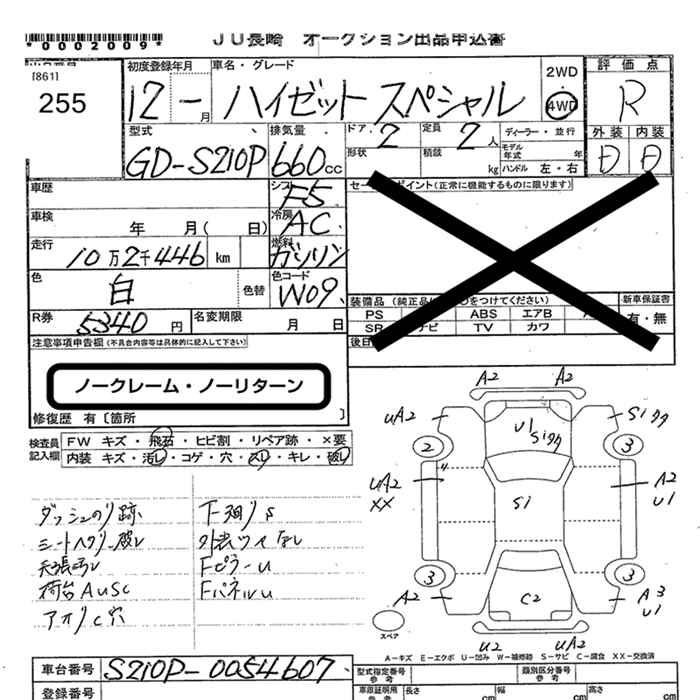 *0002009*
JU長崎 オークション出品申込書
[861]
255
初度登録年月
12-月
車名・グレード
ハイゼット スペシャル
2WD
4WD
評価点
R
型式
GD-S210P
排気量
660cc
ドア
2
定員
2人
形状
積載
kg
ディーラー・並行
モデル年式 年
ハンドル 左・右
外装 内装
D D
車歴
シフト
F5
車検
年 月( 日)
冷房
AC
走行
10万2千446 km
燃料
ガソリン
色
白
色替
色コード
W09
R券
5340円
名変期限
月 日
セールスポイント(正常に機能するものに限ります)
PS
ABS
エアB
SR
ナビ
TV
カワ
新車保証書
有・無
注意事項申告欄(不具合内容等は具体的に記入して下さい)
ノークレーム・ノーリターン
修復歴 有〔箇所 〕
検査員記入欄
FW キズ・飛石・ヒビ割・リペア跡・×要
内装 キズ・汚レ・コゲ・穴・スレ・キレ・破レ
ダッシュのり跡
シートヘタリ・破レ
天張汚レ
荷台AUSC
アオリC穴
下廻りS
外装ツヤなし
FピラーU
FパネルU
A2 A2
UA2
U1
Siタタ
Siタタ
2
3
UA2
XX
Si
A2
U1
3
3
A2
C2
A3
U1
U2
UA2
スペア
A-キズ E-エクボ U-凹み W-補修跡 S-サビ C-腐食 XX-交換済
車台番号
S210P-0054607
登録番号
型式指定番号
参考
類別区分番号
参考
長さ
cm
幅
cm
高さ
cm